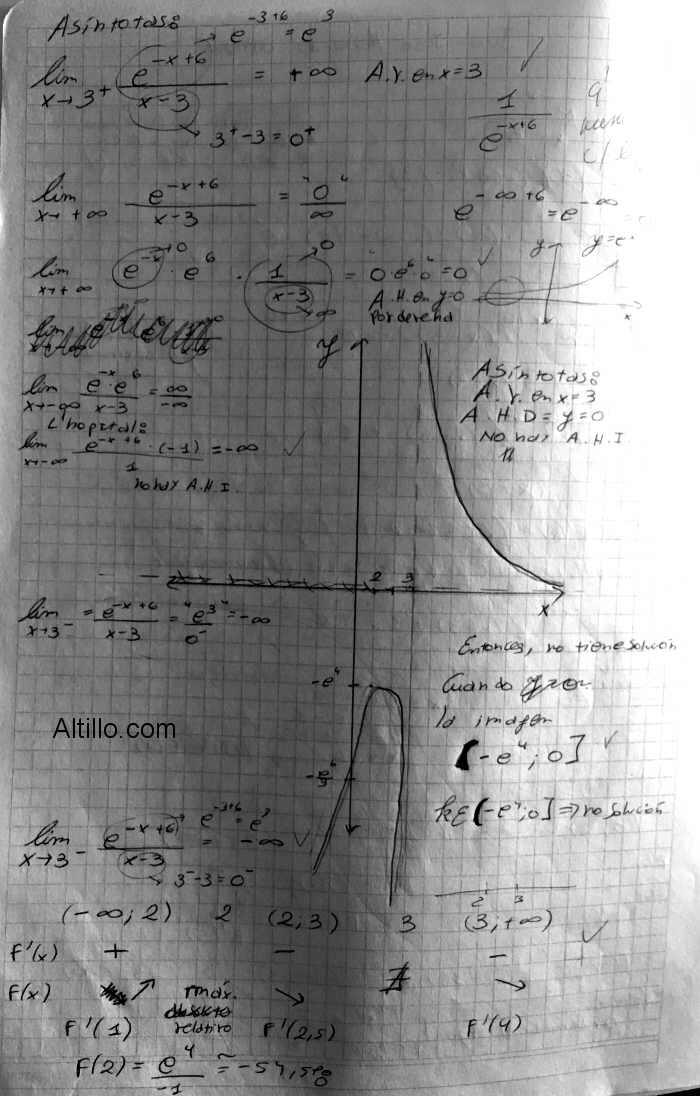 Asíntotas:
→ e^{-3+6} = e^3
lim x→3^+ e^{-x+6}/(x-3) = +∞ A.V. en x=3 ✓
→ 3^+-3=0^+
1/e^{-x+6}
lim x→+∞ e^{-x+6}/(x-3) = "0"/∞
e^{-∞+6} = e^{-∞}
lim x→+∞ e^{-x}→0 · e^6 · 1/(x-3) →0 = 0·e^6·0" = 0 ✓
→∞
A.H. en y=0
Por derecha
y
x
lim x→-∞ e^{-x}·e^6/(x-3) = ∞/-∞
L'hopital:
lim x→-∞ e^{-x+6}·(-1)/1 = -∞ ✓
no hay A.H.I.
y
Asíntotas:
A.V. en x=3
A.H.D = y=0
No hay A.H.I.
2 3
x
lim x→3^- = e^{-x+6}/(x-3) = "e^3"/0^- = -∞
Entonces, no tiene solución
Cuando
la imagen
(-e^4; 0] ✓
-e^4
-e^6/3
Altillo.com
k∈(-e^4; 0] ⇒ no solución
lim x→3^- e^{-x+6}/(x-3) = -∞ ✓
e^{-3+6} = e^3
→ 3^--3=0^-
2 3
(-∞; 2) 2 (2; 3) 3 (3; +∞) ✓
F'(x) + - -
F(x) ↗ máx. ↘ ∄ ↘
relativo
F'(1) F'(2,5) F'(4)
F(2) = e^4/-1 ≈ -54,598